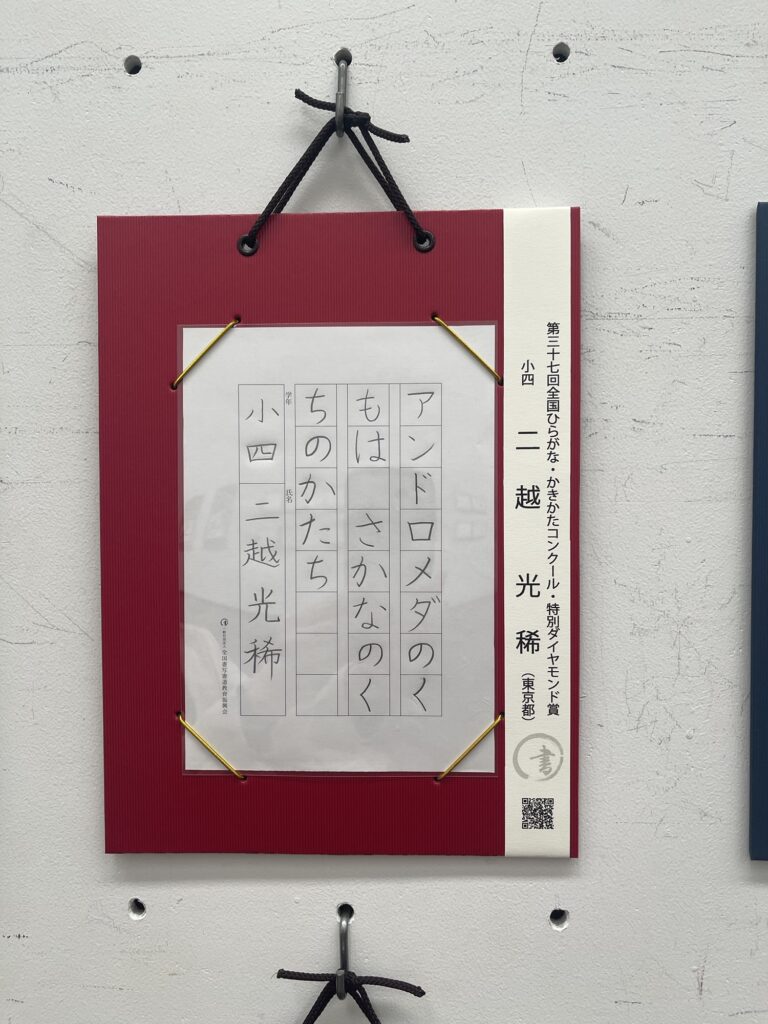 第三十七回全国ひらがな・かきかたコンクール・特別ダイヤモンド賞
小四 二越 光稀 (東京都)
書
アンドロメダのく
もは さかなのく
ちのかたち
学年 氏名
小四 二越 光稀
全国書写書道教育振興会